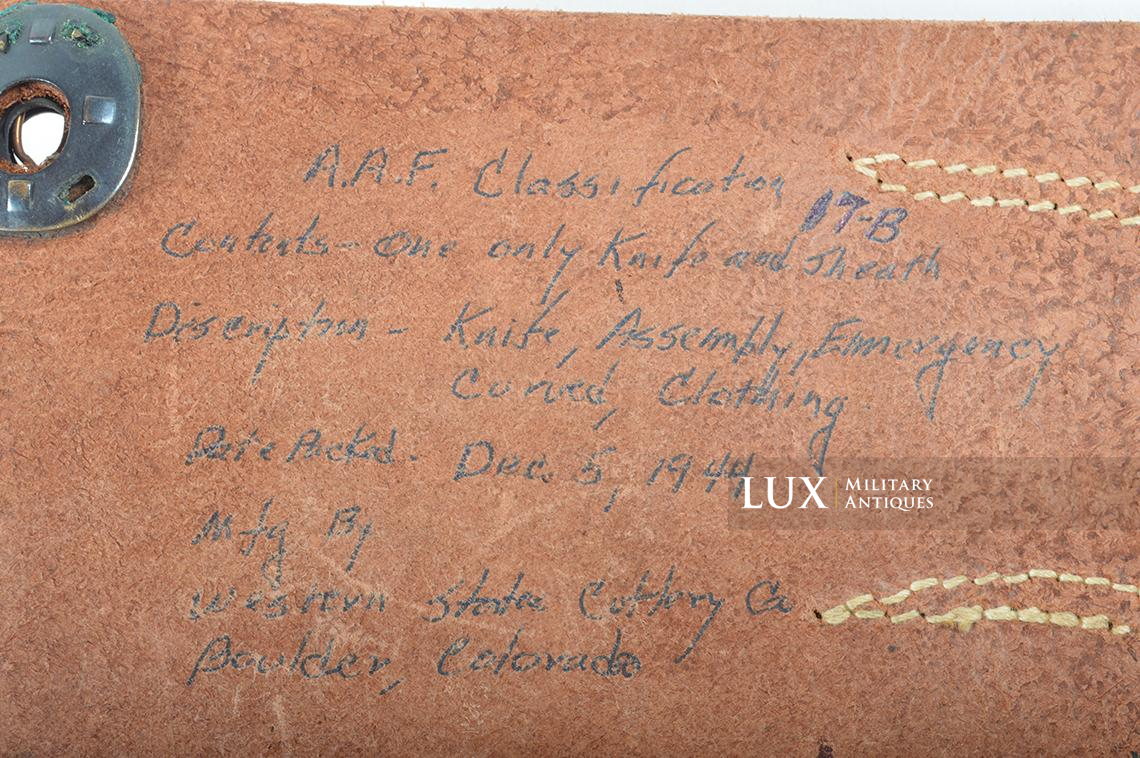 A.A.F. Classification
17-B
Contents - One only Knife and Sheath
Discription - Knife, Assembly, Emmergency
Curved, Clothing.
Date Packed. Dec. 5, 1944
LUX MILITARY ANTIQUES
Mfg By
Western States Cuttlery Co
Boulder, Colorado